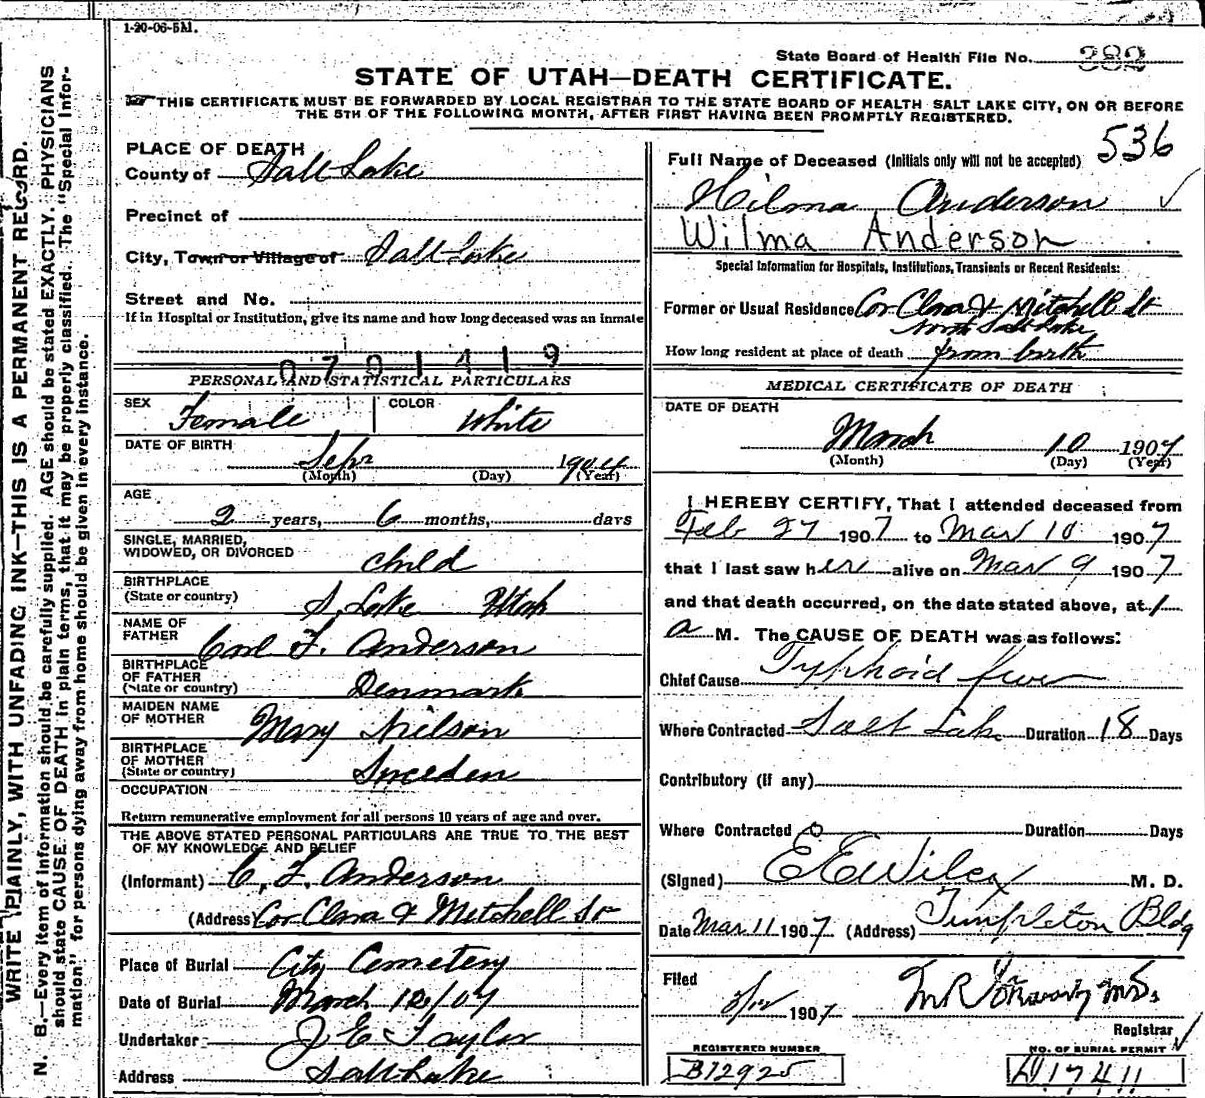 1-20-06-5M.
State Board of Health File No. 382
STATE OF UTAH—DEATH CERTIFICATE.
THIS CERTIFICATE MUST BE FORWARDED BY LOCAL REGISTRAR TO THE STATE BOARD OF HEALTH SALT LAKE CITY, ON OR BEFORE
THE 5TH OF THE FOLLOWING MONTH, AFTER FIRST HAVING BEEN PROMPTLY REGISTERED.
536
WRITE PLAINLY, WITH UNFADING INK—THIS IS A PERMANENT RECORD.
N. B.—Every item of information should be carefully supplied. AGE should be stated EXACTLY. PHYSICIANS
should state CAUSE OF DEATH in plain terms, that it may be properly classified. The "Special Infor-
mation" for persons dying away from home should be given in every instance.
PLACE OF DEATH
County of Salt Lake
Precinct of
City, Town or Village of Salt Lake
Street and No.
If in Hospital or Institution, give its name and how long deceased was an inmate
0701419
PERSONAL AND STATISTICAL PARTICULARS
SEX Female COLOR White
DATE OF BIRTH
Sepr 1904
(Month) (Day) (Year)
AGE
2 years, 6 months, days
SINGLE, MARRIED,
WIDOWED, OR DIVORCED child
BIRTHPLACE
(State or country) S. Lake Utah
NAME OF
FATHER Carl F. Anderson
BIRTHPLACE
OF FATHER
(State or country) Denmark
MAIDEN NAME
OF MOTHER Mary Nilson
BIRTHPLACE
OF MOTHER
(State or country) Sweeden
OCCUPATION
Return remunerative employment for all persons 10 years of age and over.
THE ABOVE STATED PERSONAL PARTICULARS ARE TRUE TO THE BEST
OF MY KNOWLEDGE AND BELIEF
(Informant) C. F. Anderson
(Address) Cor Clara & Mitchell St
Place of Burial City Cemetery
Date of Burial March 12/07
Undertaker J E Taylor
Address Salt Lake
Full Name of Deceased (Initials only will not be accepted)
Hilma Anderson
Wilma Anderson
Special Information for Hospitals, Institutions, Transients or Recent Residents:
Former or Usual Residence Cor Clara & Mitchell St
North Salt Lake
How long resident at place of death from birth
MEDICAL CERTIFICATE OF DEATH
DATE OF DEATH
March 10 1907
(Month) (Day) (Year)
I HEREBY CERTIFY, That I attended deceased from
Feb 27 1907 to Mar 10 1907
that I last saw her alive on Mar 9 1907
and that death occurred, on the date stated above, at 1
a M. The CAUSE OF DEATH was as follows:
Chief Cause Typhoid fever
Where Contracted Salt Lake Duration 18 Days
Contributory (if any)
Where Contracted 0 Duration Days
(Signed) E E Wilcox M. D.
Date Mar 11 1907 (Address) Templeton Bldg
Filed
3/12 1907
Registrar
REGISTERED NUMBER
B12925
NO. OF BURIAL PERMIT
D17411